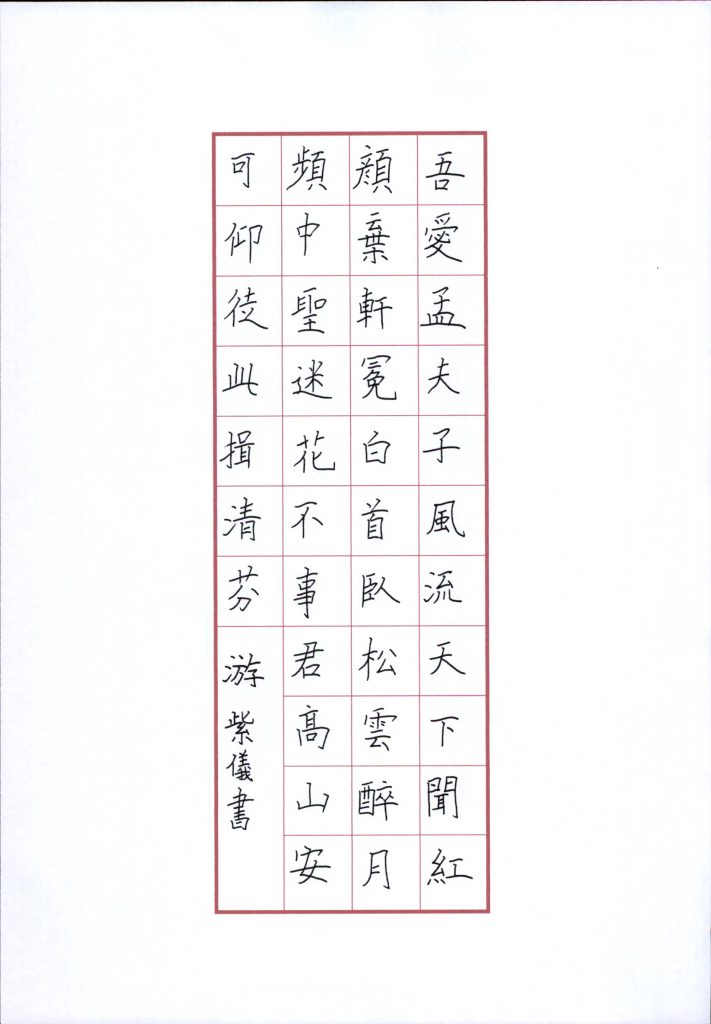 吾愛孟夫子風流天下聞紅
顏棄軒冕白首臥松雲醉月
頻中聖迷花不事君高山安
可仰徒此揖清芬
游紫儀書